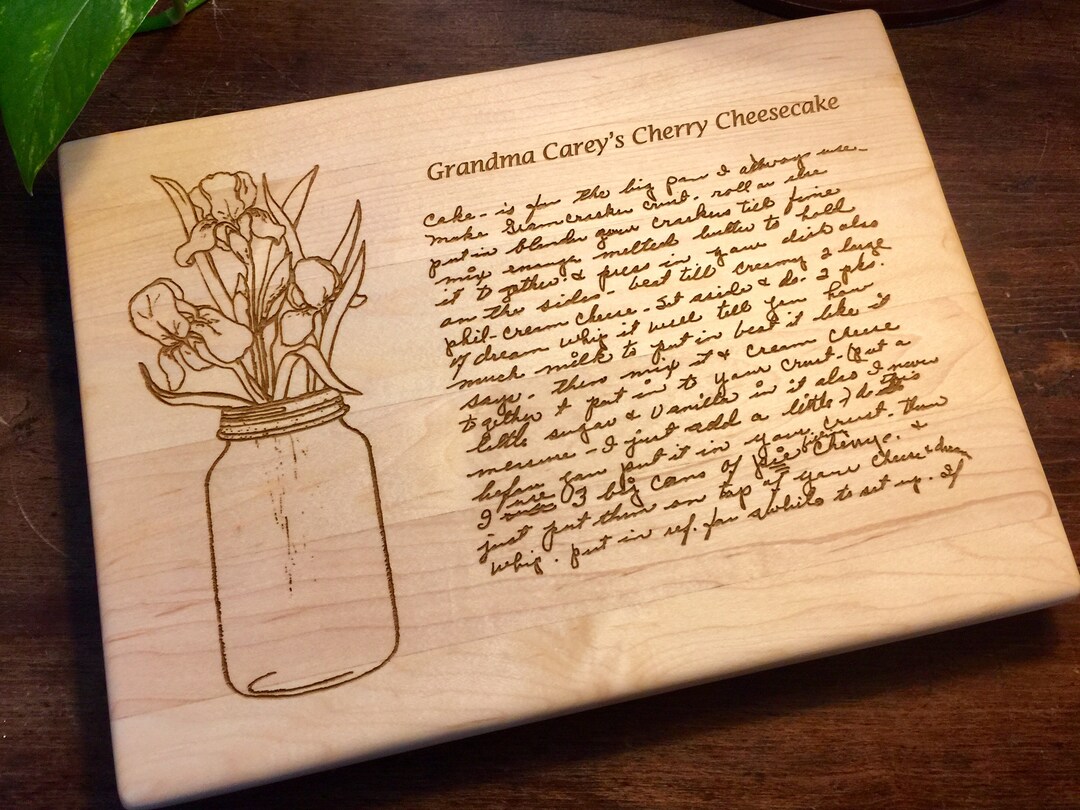 Grandma Carey's Cherry Cheesecake
cake - is for the big pan I always use -
make Gram cracker crust - roll or use
put in blender your crackers till fine
mix enough melted butter to hold
it together. & press in your dish also
on the sides - beat till creamy 2 large
phil-cream cheese - Set aside & do. 2 pks.
of dream whip it will tell you how
much milk to put in beat it like it
says - then mix it & cream cheese
together & put in to your crust - (put a
little sugar & vanilla in it also I never
measure - I just add a little) do this
before you put it in your crust. Then
I use 3 big cans of pie cherrys. &
just put them on top of your cheese & dream
whip. put in ref. for awhile to set up. If